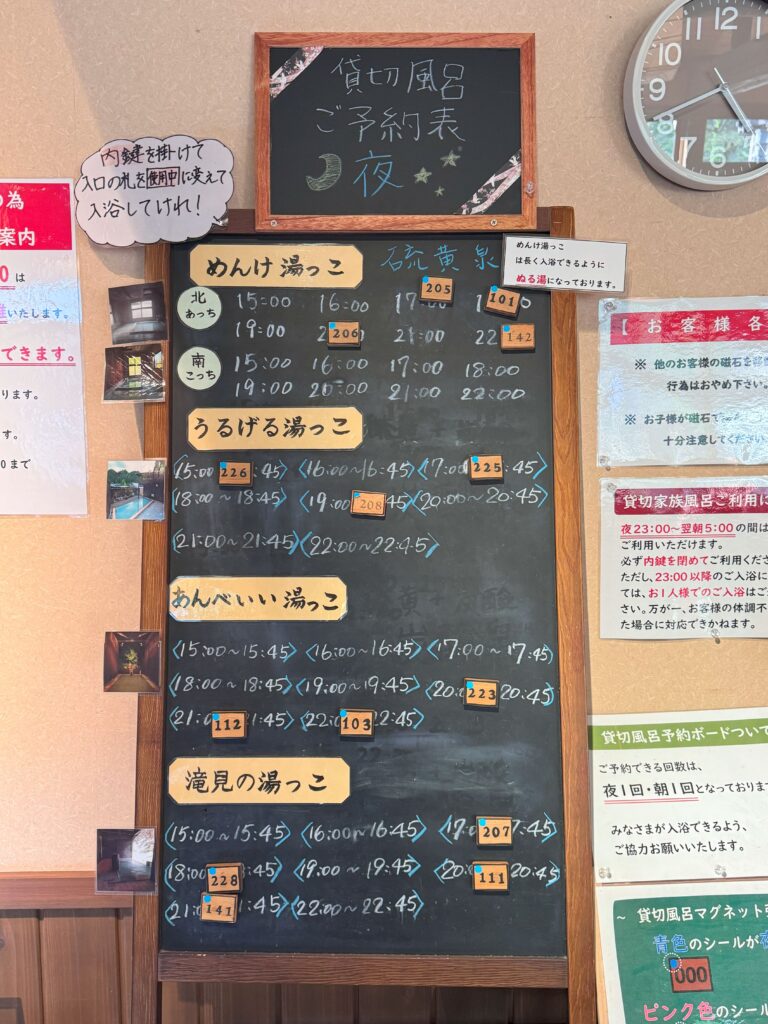 貸切風呂
ご予約表
夜
内鍵を掛けて
入口の札を使用中に変えて
入浴してけれ！
めんけ湯っこ
硫黄泉
めんけ湯っこ
は長く入浴できるように
ぬる湯になっております。
北
あっち
15:00 16:00 17: 205 101
19:00 206 21:00 22 142
南
こっち
15:00 16:00 17:00 18:00
19:00 20:00 21:00 22:00
うるげる湯っこ
15:00 226 :45 16:00〜16:45 17:00 225 :45
18:00〜18:45 19:00 208 45 20:00〜20:45
21:00〜21:45 22:00〜22:45
あんべいい湯っこ
15:00〜15:45 16:00〜16:45 17:00〜17:45
18:00〜18:45 19:00〜19:45 20: 223 20:45
21: 112 :45 22: 103 2:45
滝見の湯っこ
15:00〜15:45 16:00〜16:45 17: 207 7:45
18:00 228 :45 19:00〜19:45 20: 111 20:45
21: 141 1:45 22:00〜22:45
12
11
10
9
8
7
6
5
の為
案内
0 は
いたします。
できます。
ります。
す。
0まで
【 お 客 様 各
※ 他のお客様の磁石を
行為はおやめ下さい。
※ お子様が磁石で
十分注意してください
貸切家族風呂ご利用に
夜23:00〜翌朝5:00の間は
ご利用いただけます。
必ず内鍵を閉めてご利用くださ
ただし、23:00以降のご入浴に
ては、お1人様でのご入浴はご
さい。万が一、お客様の体調不
た場合に対応できかねます。
貸切風呂予約ボードついて
ご予約できる回数は、
夜1回・朝1回となっておりま
みなさまが入浴できるよう、
ご協力お願いいたします。
〜 貸切風呂マグネット
青色のシールが
000
ピンク色のシール